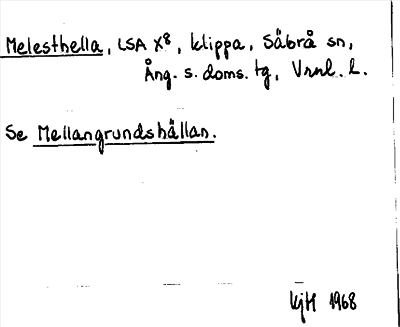 Melesthella, LSA X8, klippa, Säbrå sn,
Ång. s. doms. tg, Vrnl. l.
Se Mellangrundshällan.
KjH 1968